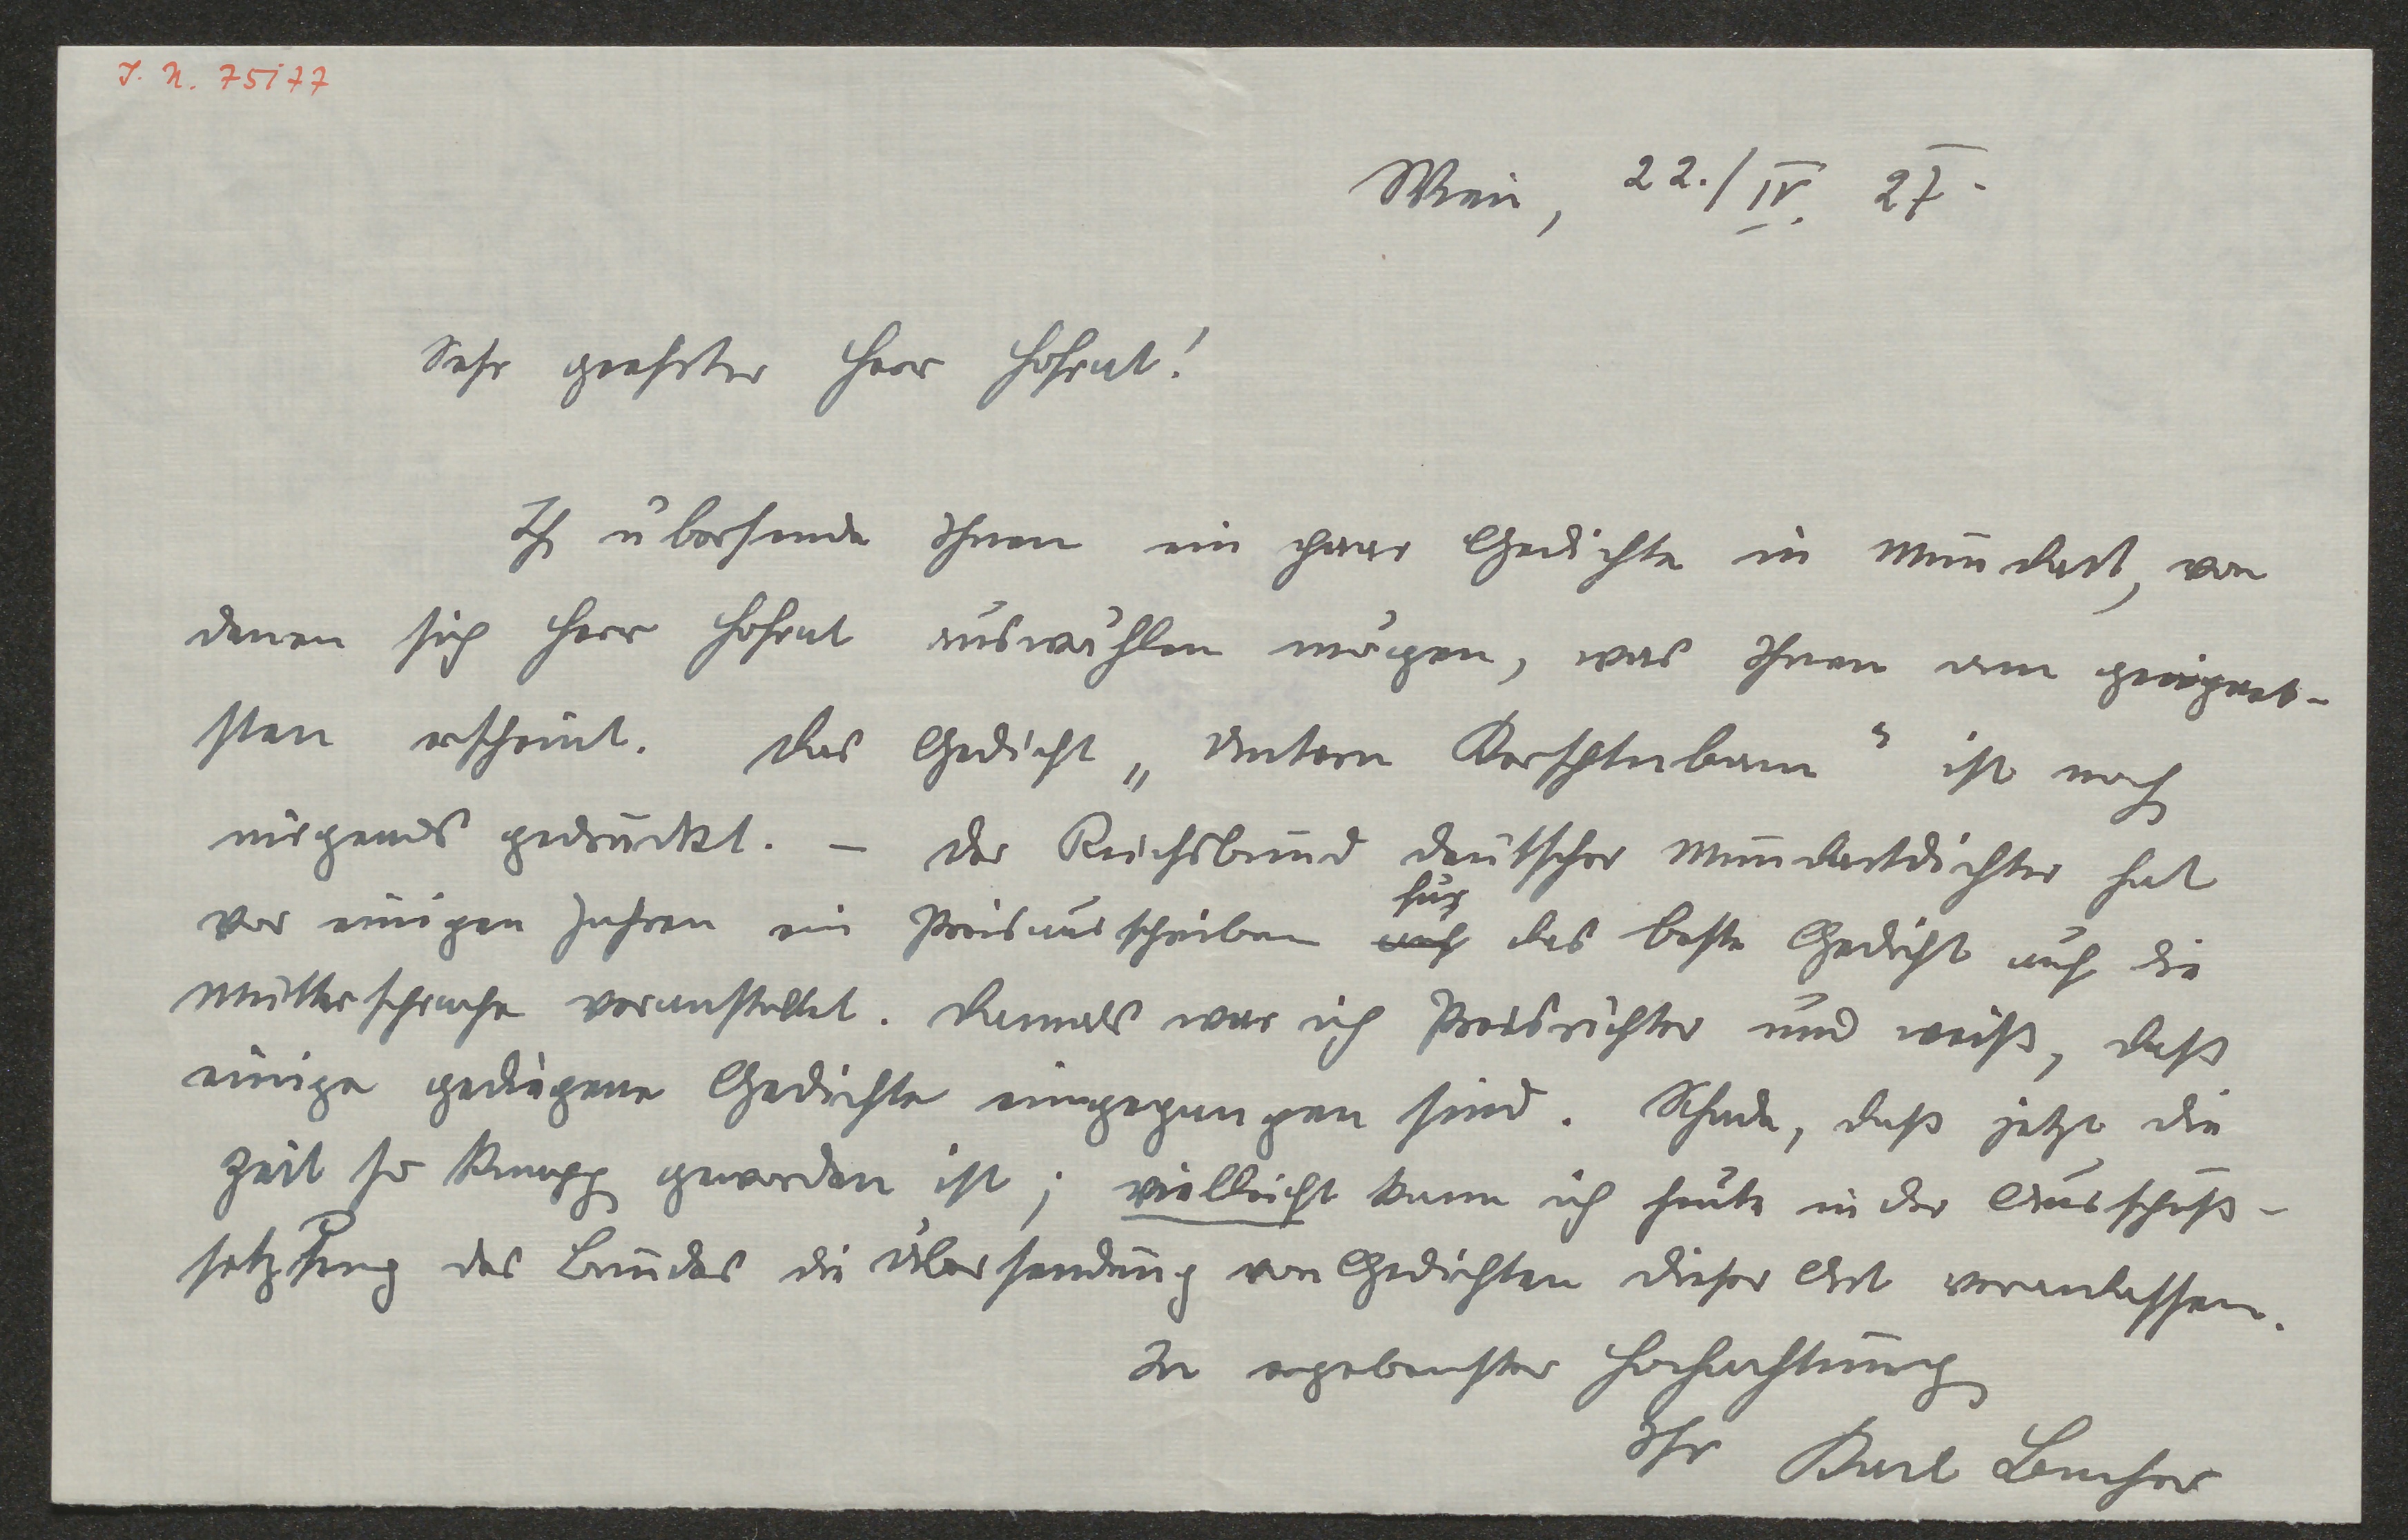 I. N. 75177
Wien, 22./IV. 27.
Sehr geehrter Herr Hofrat!
Ich übersende Ihnen ein paar Gedichte in Mundart, von
denen sich Herr Hofrat auswählen mögen, was Ihnen am geeignet-
sten erscheint. Das Gedicht „Untern Kerschtnbam“ ist noch
nirgends gedruckt. – Der Reichsbund deutscher Mundartdichter hat
für
vor einigen Jahren ein Preisausschreiben auf das beste Gedicht auf die
Muttersprache veranstaltet. Damals war ich Preisrichter und weiß, daß
einige gediegene Gedichte eingegangen sind. Schade, daß jetzt die
Zeit so knapp geworden ist; vielleicht kann ich heute in der Ausschuß-
sitzung des Bundes die Übersendung von Gedichten dieser Art veranlassen.
In ergebenster Hochachtung
Ihr Karl